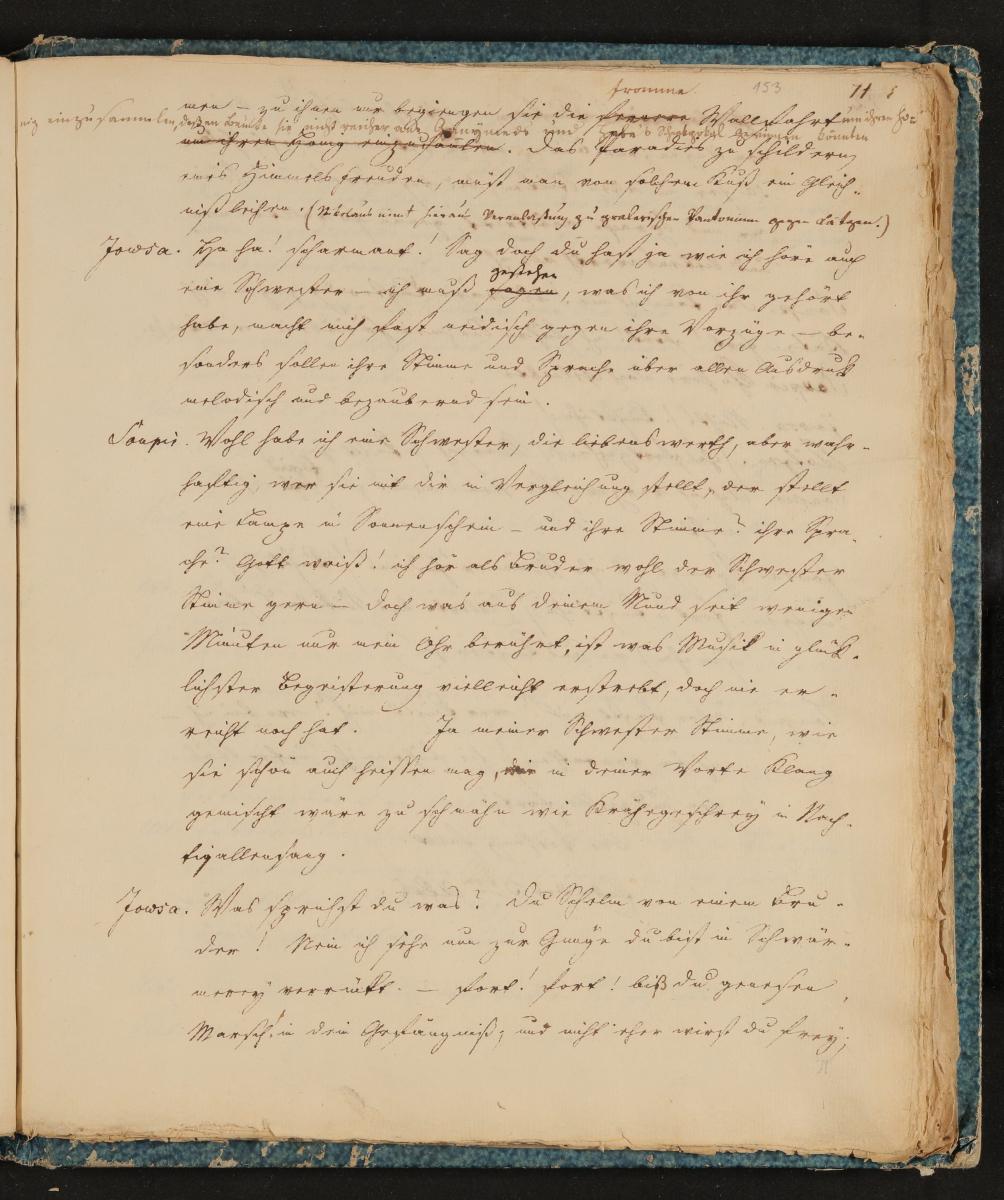 fromme. 153 11
men – zu ihnen nur begiengen sie die fernere Wallfahrt um ihren Ho=
nig einzusammlen, dessen Beute sie nicht reicher aus Ganymeds und Hebe's könnten
um ihren Honig einzusaulen. Das Paradies zu schildern,
eines Himmels freuden, müst man von solchem Kuß ein Gleich-
niß leihen. (Nikolaus nimt hieraus Veranlaßung zu Pantomim gegen Latzen.)
Jowsa. Ha ha! scharmant! Sag doch du hast ja wie ich höre auch
gestehen
eine Schwester – ich muß sagen, was ich von ihr gehört
habe, macht mich fast neidisch gegen ihre Vorzüge – be-
sonders sollen ihre Stimme und Sprache über allen Ausdruck
melodisch und bezaubernd sein.
Wohl habe ich eine Schwester, die liebenswerth, aber wahr-
haftig, wer sie mit dir in Vergleichung stellt, der stellt
eine Lampe in Sonnenschein – und ihre Stimme? ihre Spra-
che? Gott weiß! ich hör als Bruder wohl der Schwester
Stimme gern – doch was aus deinem Mund seit wenigen
Minuten nur mein Ohr berührt, ist was Musik in glück-
lichster Begeisterung vielleicht erstrebt, doch nie er-
reicht noch hat. Ja meiner Schwester Stimme, wie
sie schön auch heissen mag, in deiner Worte Klang
gemischt wäre zu schmähn wie Krähegeschrey in Nach-
tigallensang.
Jowsa. Was sprichst du was? Du Schelm von einem Bru-
der! Nein ich sehe nun zur Gnüge du bist in Schwär-
merey verrückt. – fort! fort! biß du genesen,
Marsch! in dein Gefängniß; und nicht eher wirst du frey;